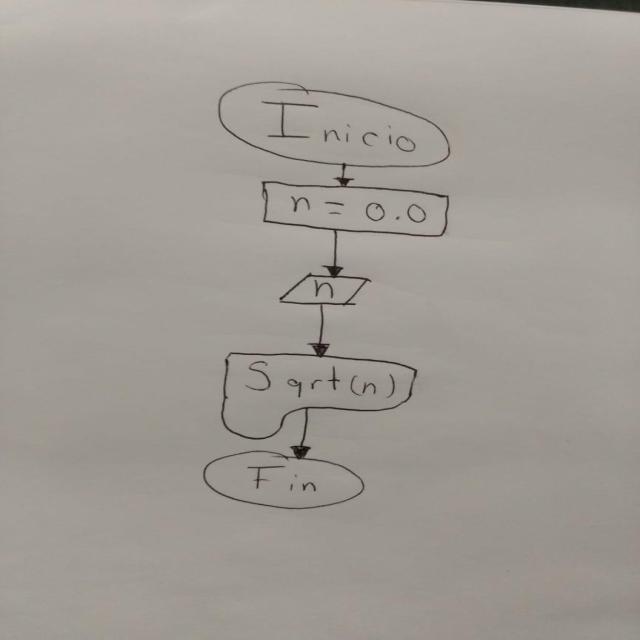 Inicio
n = 0.0
n
Sqrt(n)
Fin